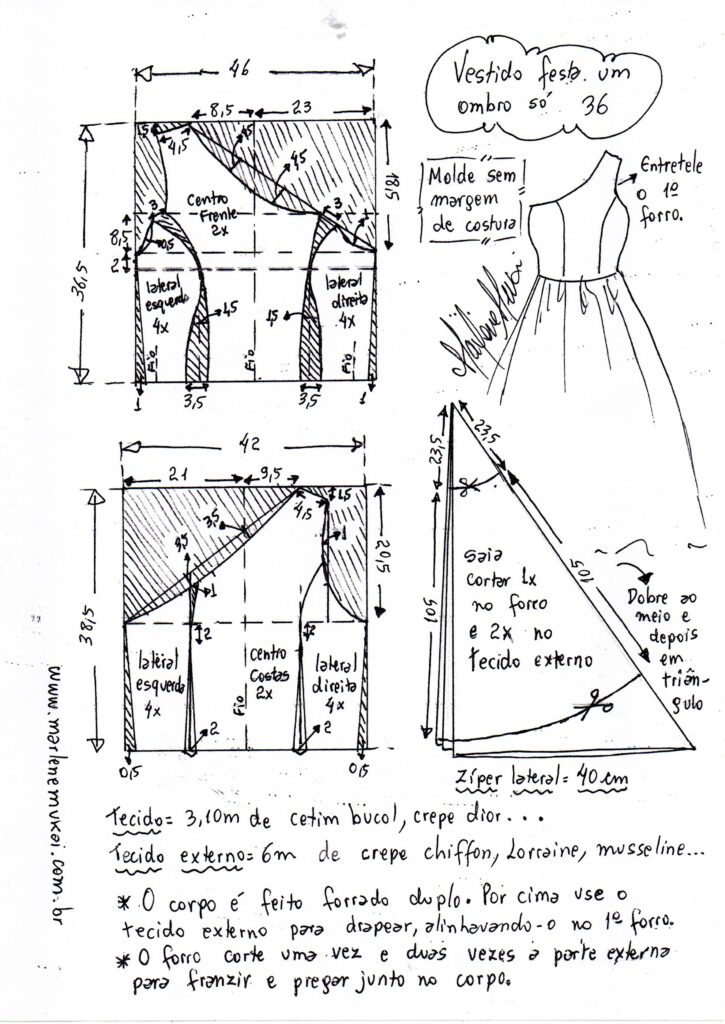 Vestido festa um
ombro só 36
Molde sem
margem
de costura
Entretele
o 1º
forro.
46
8,5
23
1,5
4,5
4,5
4,5
18,5
36,5
8,5
2
3
0,5
3
1
Centro
Frente
2x
lateral
esquerda
4x
1,5
1,5
lateral
direita
4x
Fio
Fio
Fio
1
3,5
3,5
1
42
21
9,5
1,5
4,5
3,5
1
20,5
38,5
1
2
2
lateral
esquerda
4x
Centro
Costas
2x
lateral
direita
4x
Fio
2
2
0,5
0,5
23,5
23,5
105
105
saia
cortar 1x
no forro
e 2x no
tecido externo
Dobre ao
meio e
depois
em
triân-
gulo
Zíper lateral = 40 cm
www.marlenemukai.com.br
Tecido = 3,10m de cetim bucol, crepe dior...
Tecido externo = 6m de crepe chiffon, Lorraine, musseline...
* O corpo é feito forrado duplo. Por cima use o
tecido externo para drapear, alinhavando-o no 1º forro.
* O forro corte uma vez e duas vezes a parte externa
para franzir e pregar junto no corpo.